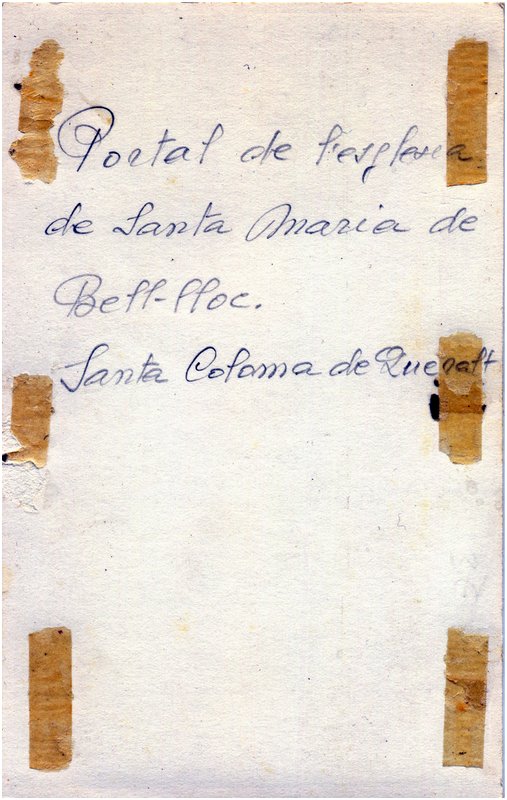 Portal de l'esglesia
de Santa Maria de
Bell-lloc.
Santa Coloma de Queralt